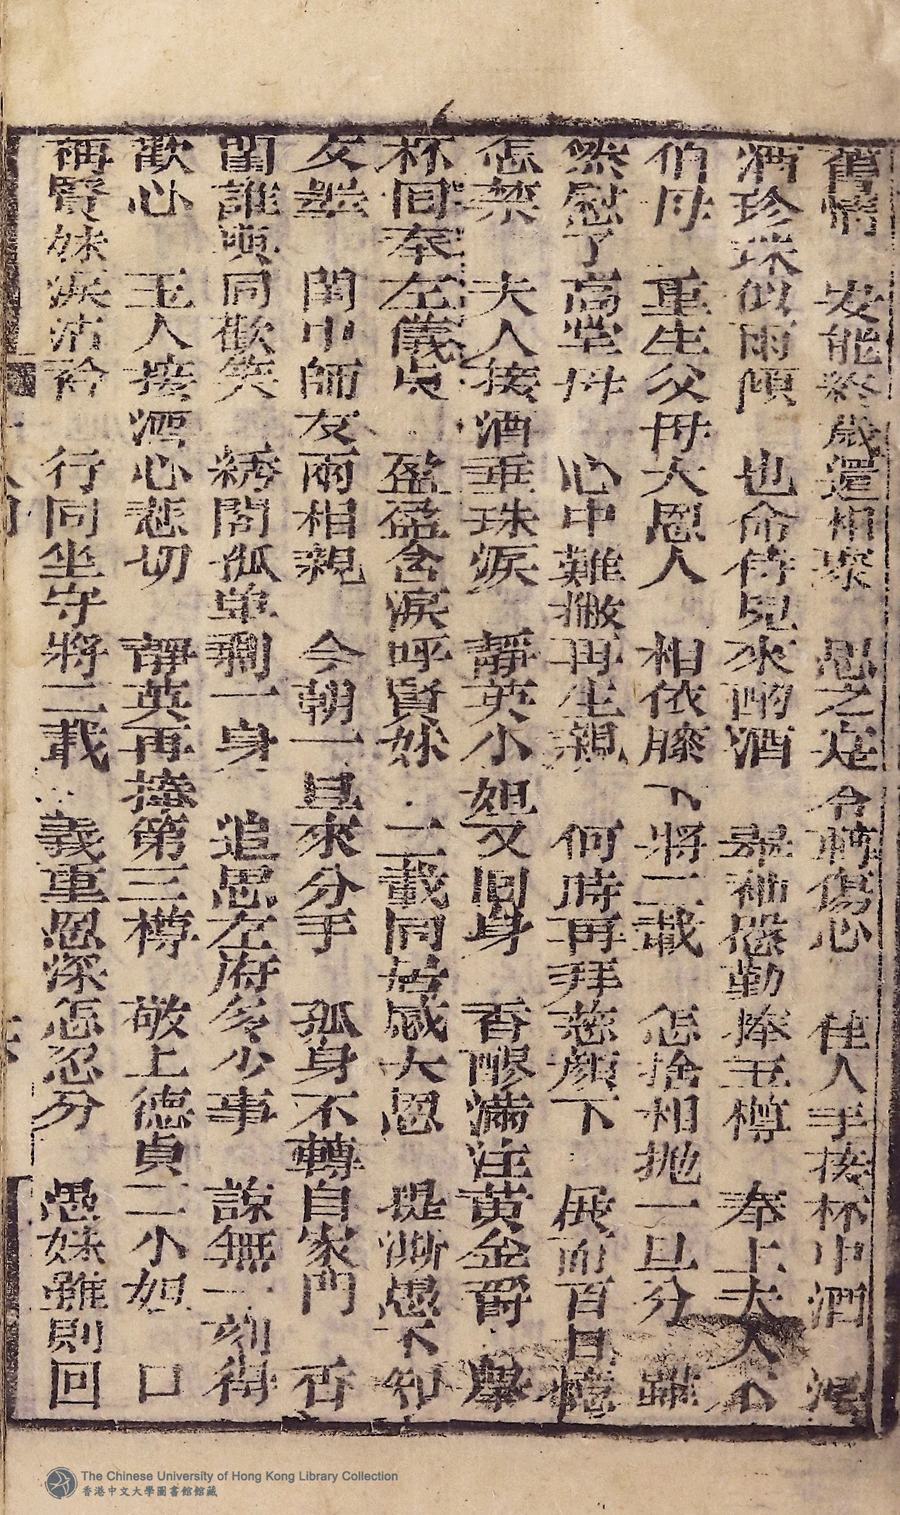 舊情　安能終歲還相聚　思之寔令轉傷心　佳人手接杯中酒　淚
酒珍珠似雨傾　也命侍兒來酌酒　舉袖慇勤捧玉樽　奉上夫人
伯母　重生父母大恩人　相依膝下將二載　怎捨相抛一旦分　雖
然慰了高堂母　心中難撇再生親　何時再拜慈顏下　展而百日
怎禁　夫人接酒垂珠淚　靜英小姐又回身　香醪滿注黄金爵
杯同奉左儀貞　盈盈含淚呼賢妹　二載同居感大恩　提漸愚不知
友無　閨中師友兩相親　今朝一旦來分手　孤身不轉自家門　否
閨誰與同歡笑　綉閣孤單剩一身　追思左府多少事　諒無一刻得
歡心　玉人接酒心悲切　靜英再捧第三樽　敬上德貞二小姐　口
稱賢妹淚沾衿　行同坐守將二載　義重恩深怎忍分　愚妹雖則回
The Chinese University of Hong Kong Library Collection
香港中文大學圖書館館藏